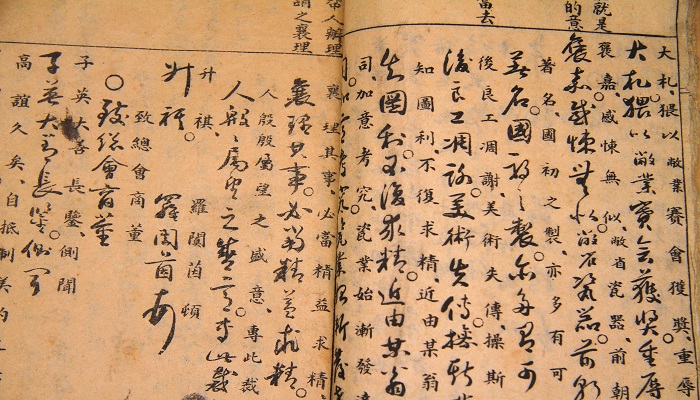 就是
的意
當去
大札猥以敝業賽會獲獎、重辱
大札猥以敝業賽會獲獎重辱
褒嘉、感悚無似、敝省瓷器、前朝
褒嘉感悚無似敝省瓷器前朝
著名、國初之製、亦多有可
著名國初之製亦多有可
後良工凋謝、美術失傳、操斯
後良工凋謝美術失傳操斯
知圖利、不復求精、近由某翁
知圖利不復求精近由某翁
司、加意考究、瓷業始漸發達
人辦理
謂之襄理
襄理其事、必當精益求精
襄理其事必當精益求精
人殷殷屬望之盛意、專此裁
人殷殷屬望之盛意專此裁
升祺、羅闓茵頓
升祺 羅闓茵頓
致總會商董
〇致總會商董
子英大善長鑒側聞
子英大善長鑒側聞
高誼久矣、自抵制美約